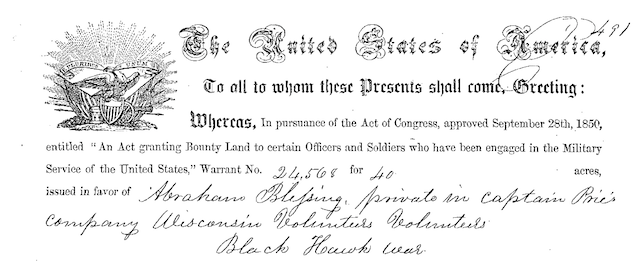 491
The United States of America,
PLURIBUS UNUM
To all to whom these Presents shall come, Greeting:
Whereas, In pursuance of the Act of Congress, approved September 28th, 1850,
entitled "An Act granting Bounty Land to certain Officers and Soldiers who have been engaged in the Military
Service of the United States," Warrant No. 24,568 for 40 acres,
issued in favor of Abraham Blessing, private in Captain
company Wisconsin Volunteers Volunteers
Black Hawk War